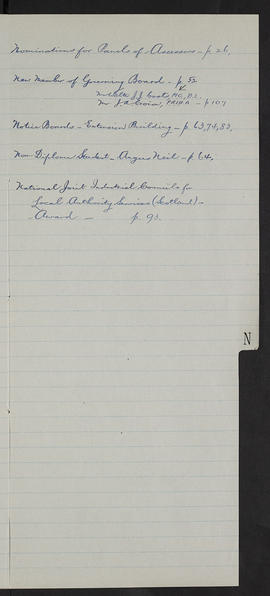 Nominations for Panels of Assessors - p 26.
New Member of Governing Board - p. 52
J. J. MC, D.L.
Mr J. A. FRIBA - p 107
Notice Boards - Extension Building - p 63, 74, 83.
Non Diploma Student - Angus Neil - p 64.
National Joint Industrial Councils for
Local Authority Services (Scotland) -
Award - p. 93.
N